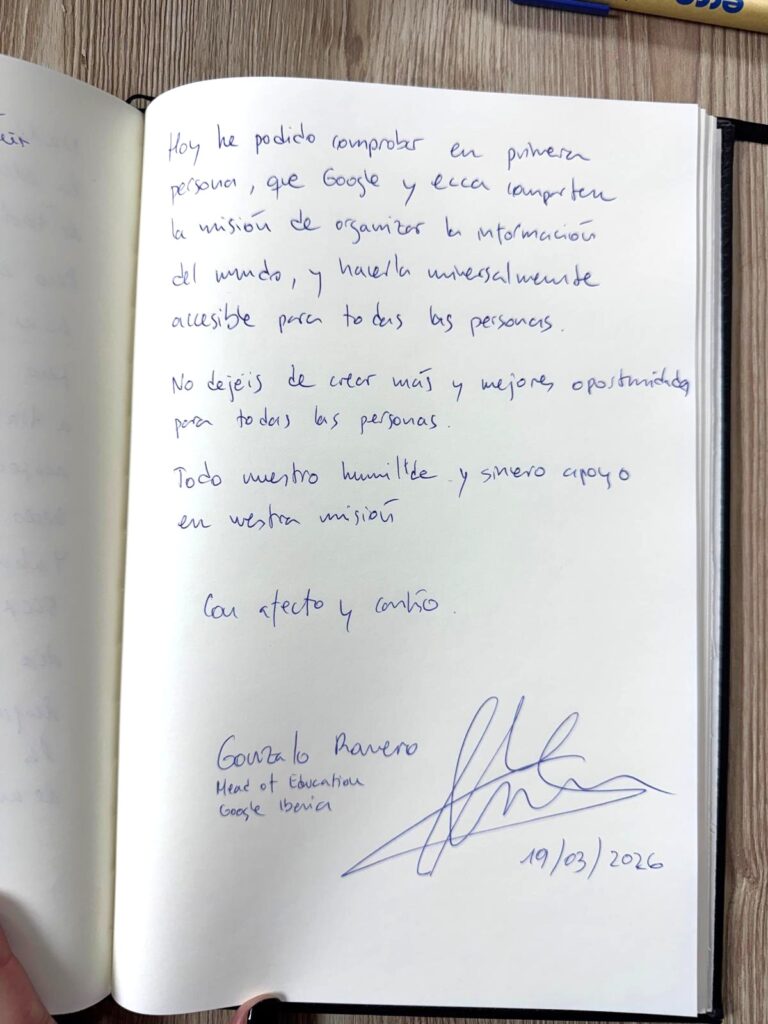 Hoy he podido comprobar en primera
persona, que Google y ecca comparten
la misión de organizar la información
del mundo, y hacerla universalmente
accesible para todas las personas.
No dejéis de crear más y mejores oportunidades
para todas las personas.
Todo nuestro humilde y sincero apoyo
en vuestra misión
Con afecto y cariño.
Gonzalo Romero
Head of Education
Google Iberia
19/03/2026